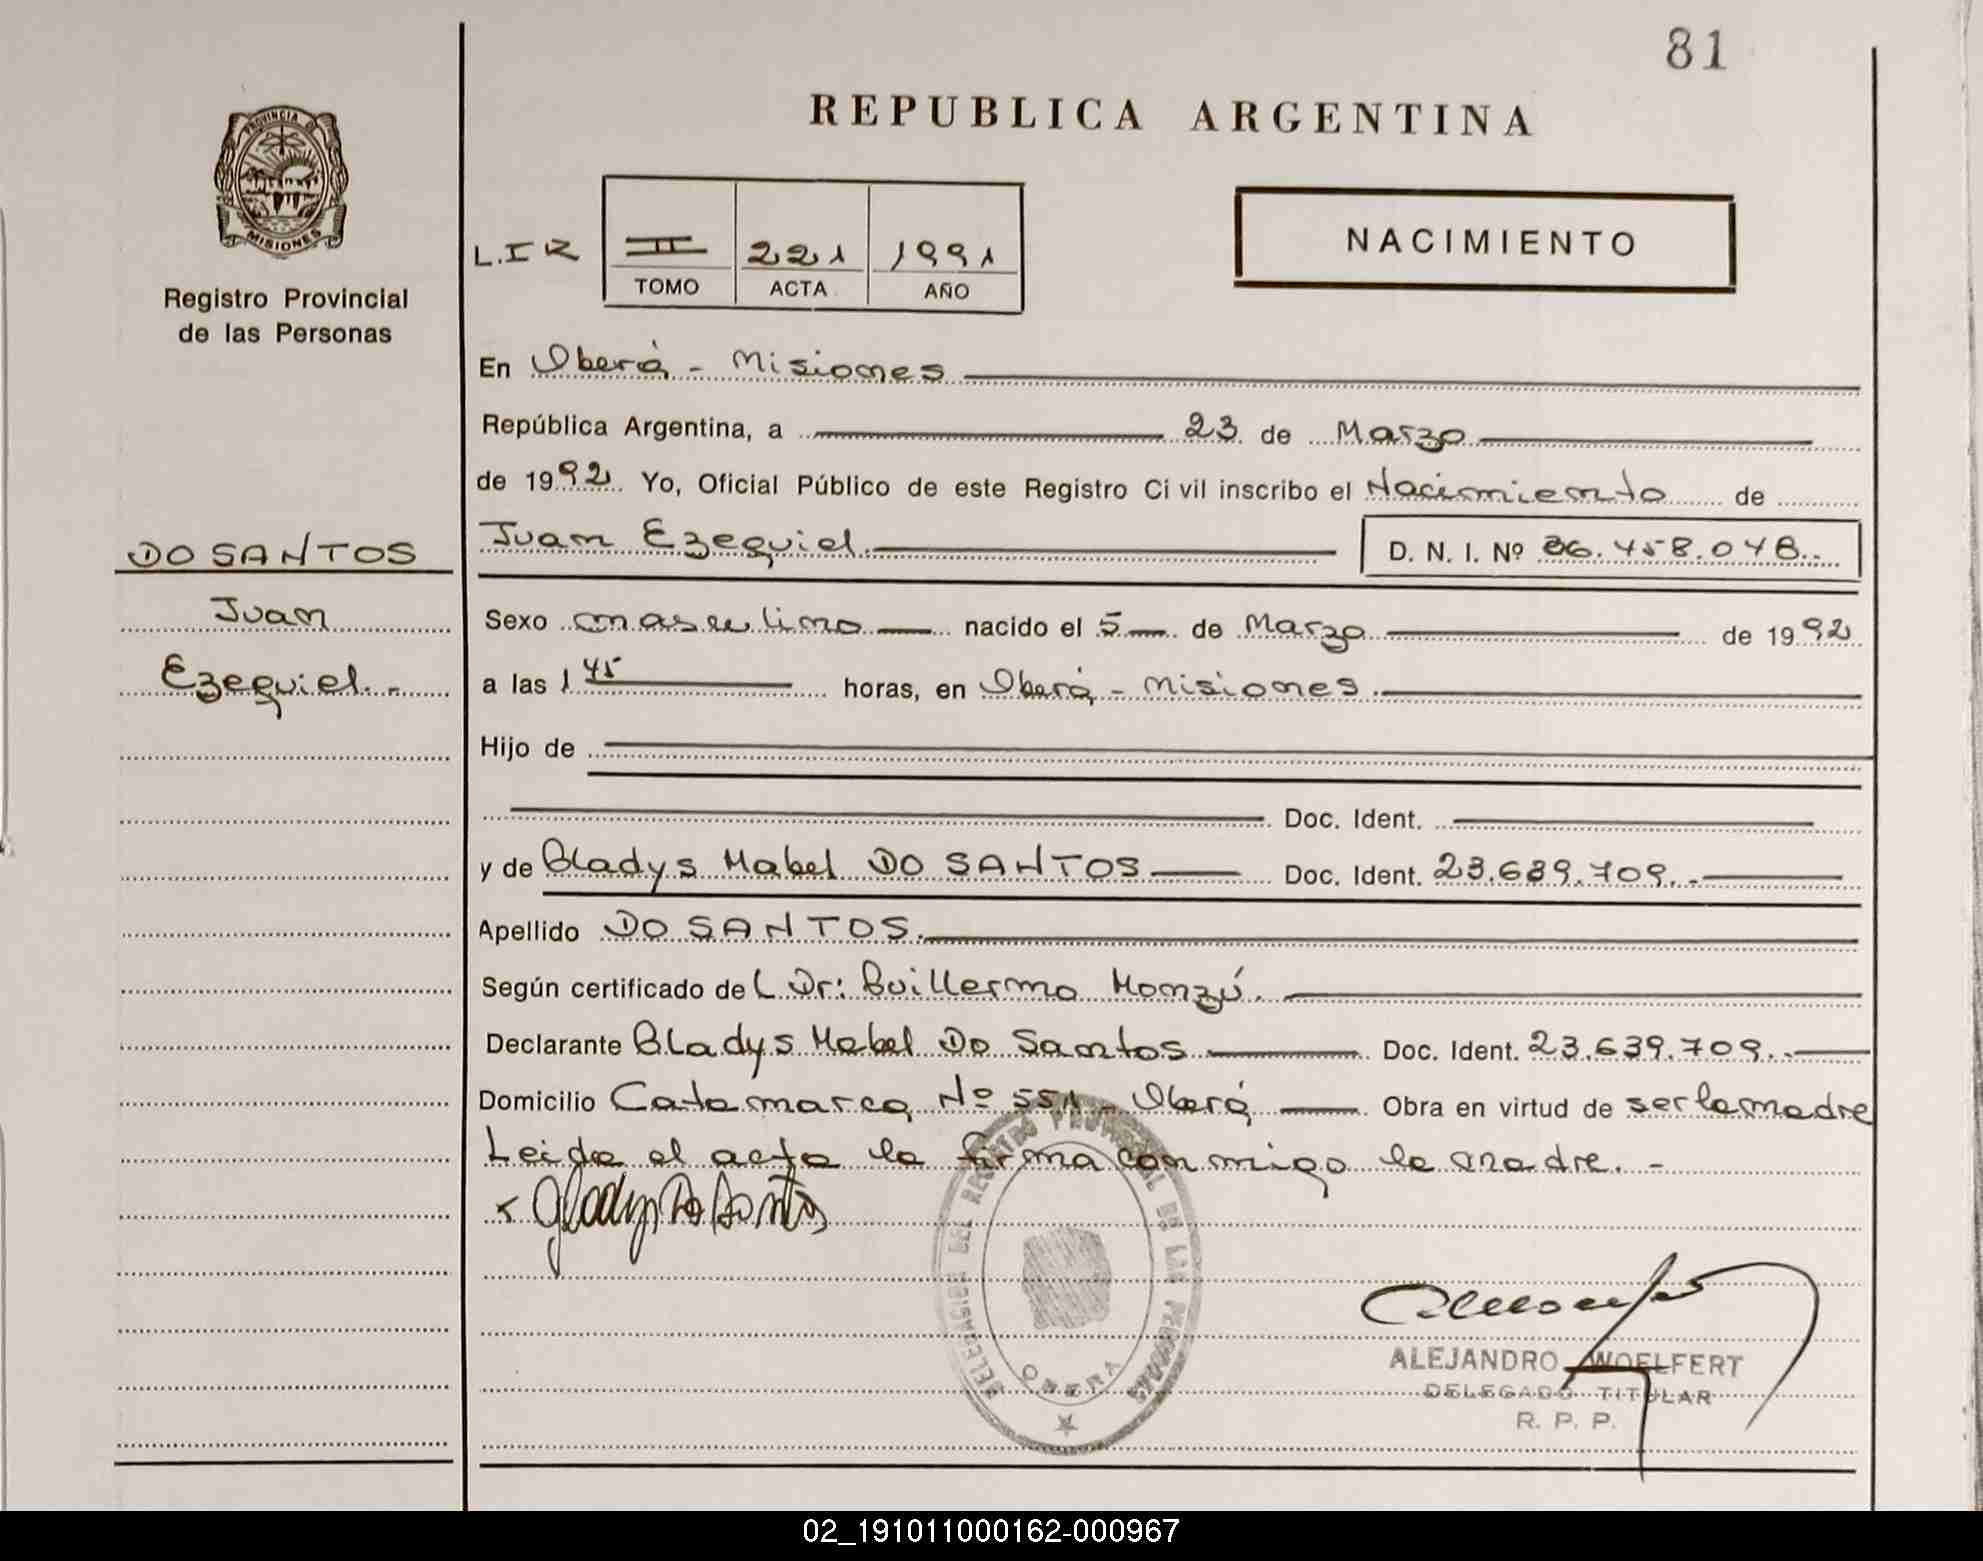 81
REPUBLICA ARGENTINA
PROVINCIA DE
MISIONES
Registro Provincial
de las Personas
L.I R
II 221 1991
TOMO ACTA AÑO
NACIMIENTO
En Oberá - Misiones
República Argentina, a 23 de Marzo
de 1992 Yo, Oficial Público de este Registro Civil inscribo el Nacimiento de
Juan Ezequiel. D. N. I. Nº 36.458.048..
DO SANTOS
Juan
Ezequiel. -
Sexo masculino nacido el 5 de Marzo de 1992
a las 1 45 horas, en Oberá - Misiones.
Hijo de
Doc. Ident.
y de Gladys Mabel DO SANTOS Doc. Ident. 23.639.709. -
Apellido DO SANTOS.
Según certificado del Dr: Guillermo Monzú.
Declarante Gladys Mabel Do Santos Doc. Ident. 23.639.709. -
Domicilio Catamarca Nº 551 - Oberá Obra en virtud de ser la madre
Leida el acta la firma conmigo la madre. -
x Gladys Do Santos
DELEGACION DEL REGISTRO PROVINCIAL DE LAS PERSONAS
OBERA
ALEJANDRO WOELFERT
DELEGADO TITULAR
R. P. P.
02_191011000162-000967